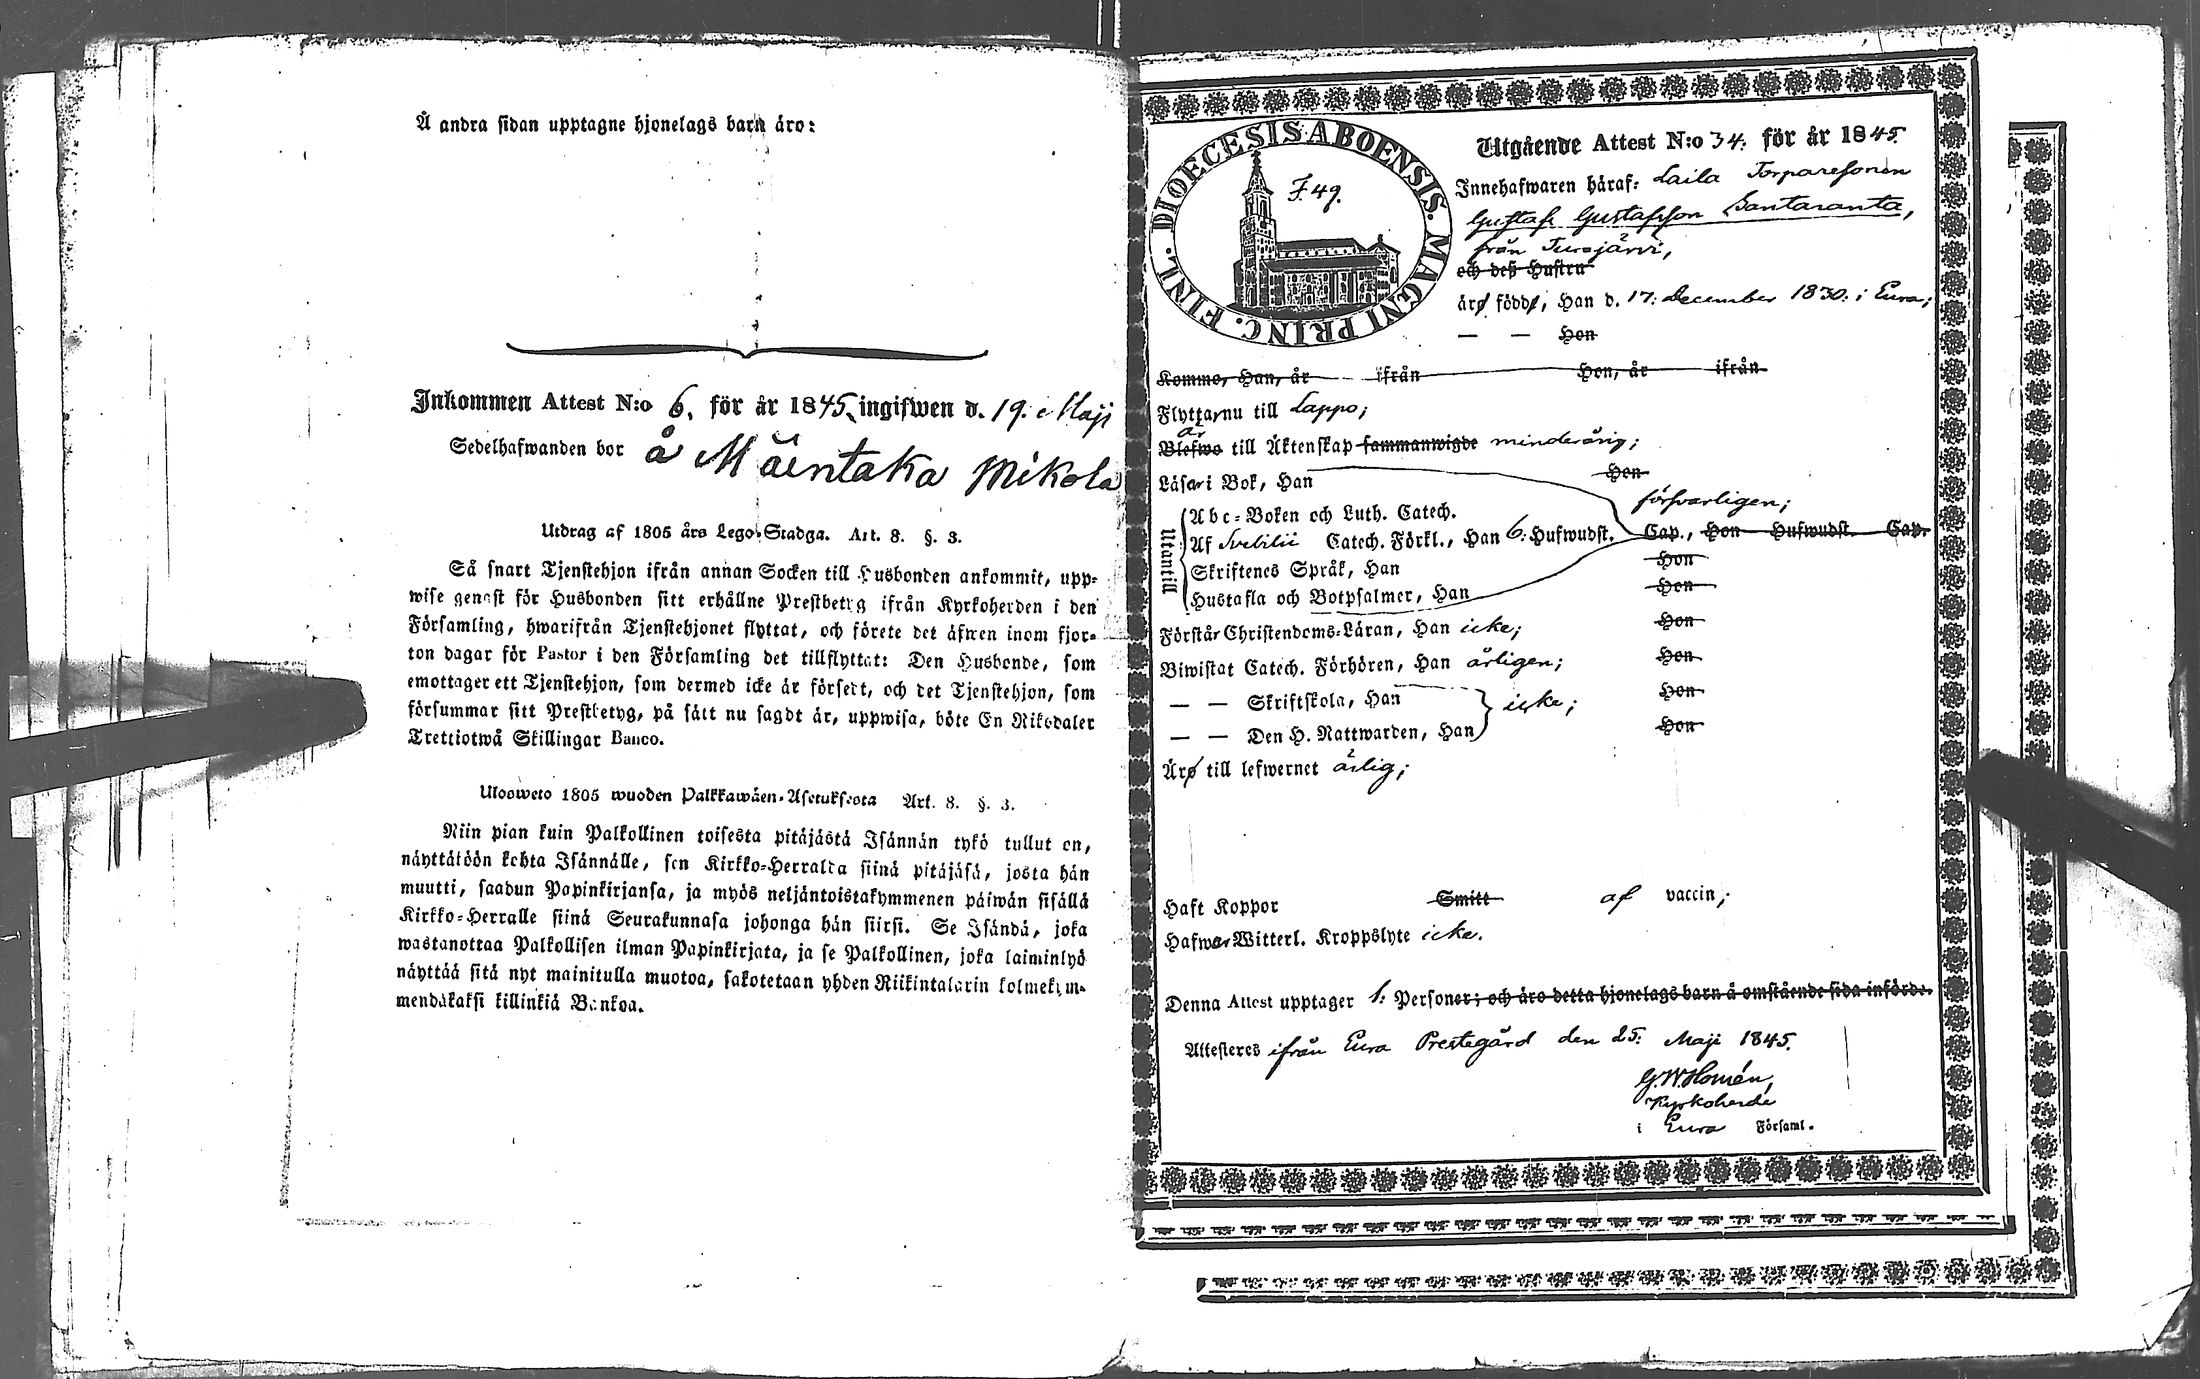 Å andra sidan upptagne hjonelags barn äro:
Inkommen Attest N:o 6. för år 1845, ingifwen d. 19. Maji
Sedelhafwanden bor å Mäentaka Mikola
Utdrag af 1805 års Lego-Stadga. Art. 8. §. 3.
Så snart Tjenstehjon ifrån annan Socken till Husbonden ankommit, upp-
wise genast för Husbonden sitt erhållne Prestbetyg ifrån Kyrkoherden i den
Församling, hwarifrån Tjenstehjonet flyttat, och förete det äfwen inom fjor-
ton dagar för Pastor i den Församling det tillflyttat: Den Husbonde, som
emottager ett Tjenstehjon, som dermed icke är försedt, och det Tjenstehjon, som
försummar sitt Prestbetyg, på sätt nu sagdt är, uppwisa, böte En Riksdaler
Trettiotwå Skillingar Banco.
Ulosweto 1805 wuoden Palkkawäen-Asetuksesta Art. 8. §. 3.
Niin pian kuin Palkollinen toisesta pitäjästä Isännän tykö tullut on,
näyttäköön kohta Isännälle, sen Kirkko-Herralda siinä pitäjäsä, josta hän
muutti, saadun Papinkirjansa, ja myös neljäntoistakymmenen päiwän sisällä
Kirkko-Herralle siinä Seurakunnasa johonga hän siirsi. Se Isändä, joka
wastanottaa Palkollisen ilman Papinkirjata, ja se Palkollinen, joka laiminlyö
näyttää sitä nyt mainitulla muotoa, sakotetaan yhden Riikintalarin kolmekym-
mendäkaksi killinkiä Bankoa.
DIOECESIS ABOENSIS. MAGNI PRINC. FINL.
F. 49.
Utgående Attest N:o 34. för år 1845.
Innehafwaren häraf: Laila Torparesonen
Gustaf Gustafsson Santaranta,
från Turajärvi,
och deß Hustru
äro födde, Han d. 17: December 1830: i Eura;
— — Hon
Kommo, Han, år ifrån Hon, år ifrån
Flyttar nu till Lappo;
är
Blefwo till Äktenskap sammanwigde minderårig;
Läsa i Bok, Han Hon
försvarligen;
Utantill
Abc-Boken och Luth. Catech.
Af Svebilii Catech. Förkl., Han 6: Hufwudst. Cap., Hon Hufwudst. Cap.
Skriftenes Språk, Han Hon
Hustafla och Botpsalmer, Han Hon
Förstår Christendoms-Läran, Han icke; Hon
Biwistat Catech. Förhören, Han årligen; Hon
— — Skriftskola, Han icke; Hon
— — Den H. Nattwarden, Han Hon
Äro till lefwernet ärlig;
Haft Koppor Smitt af vaccin;
Hafwer Witterl. Kroppslyte icke.
Denna Attest upptager 1: Personer; och äro detta hjonelags barn å omstående sida införde.
Attesteres ifrån Eura Prestegård den 25: Maji 1845.
G.W.Homén,
Kyrkoherde
i Eura Församl.